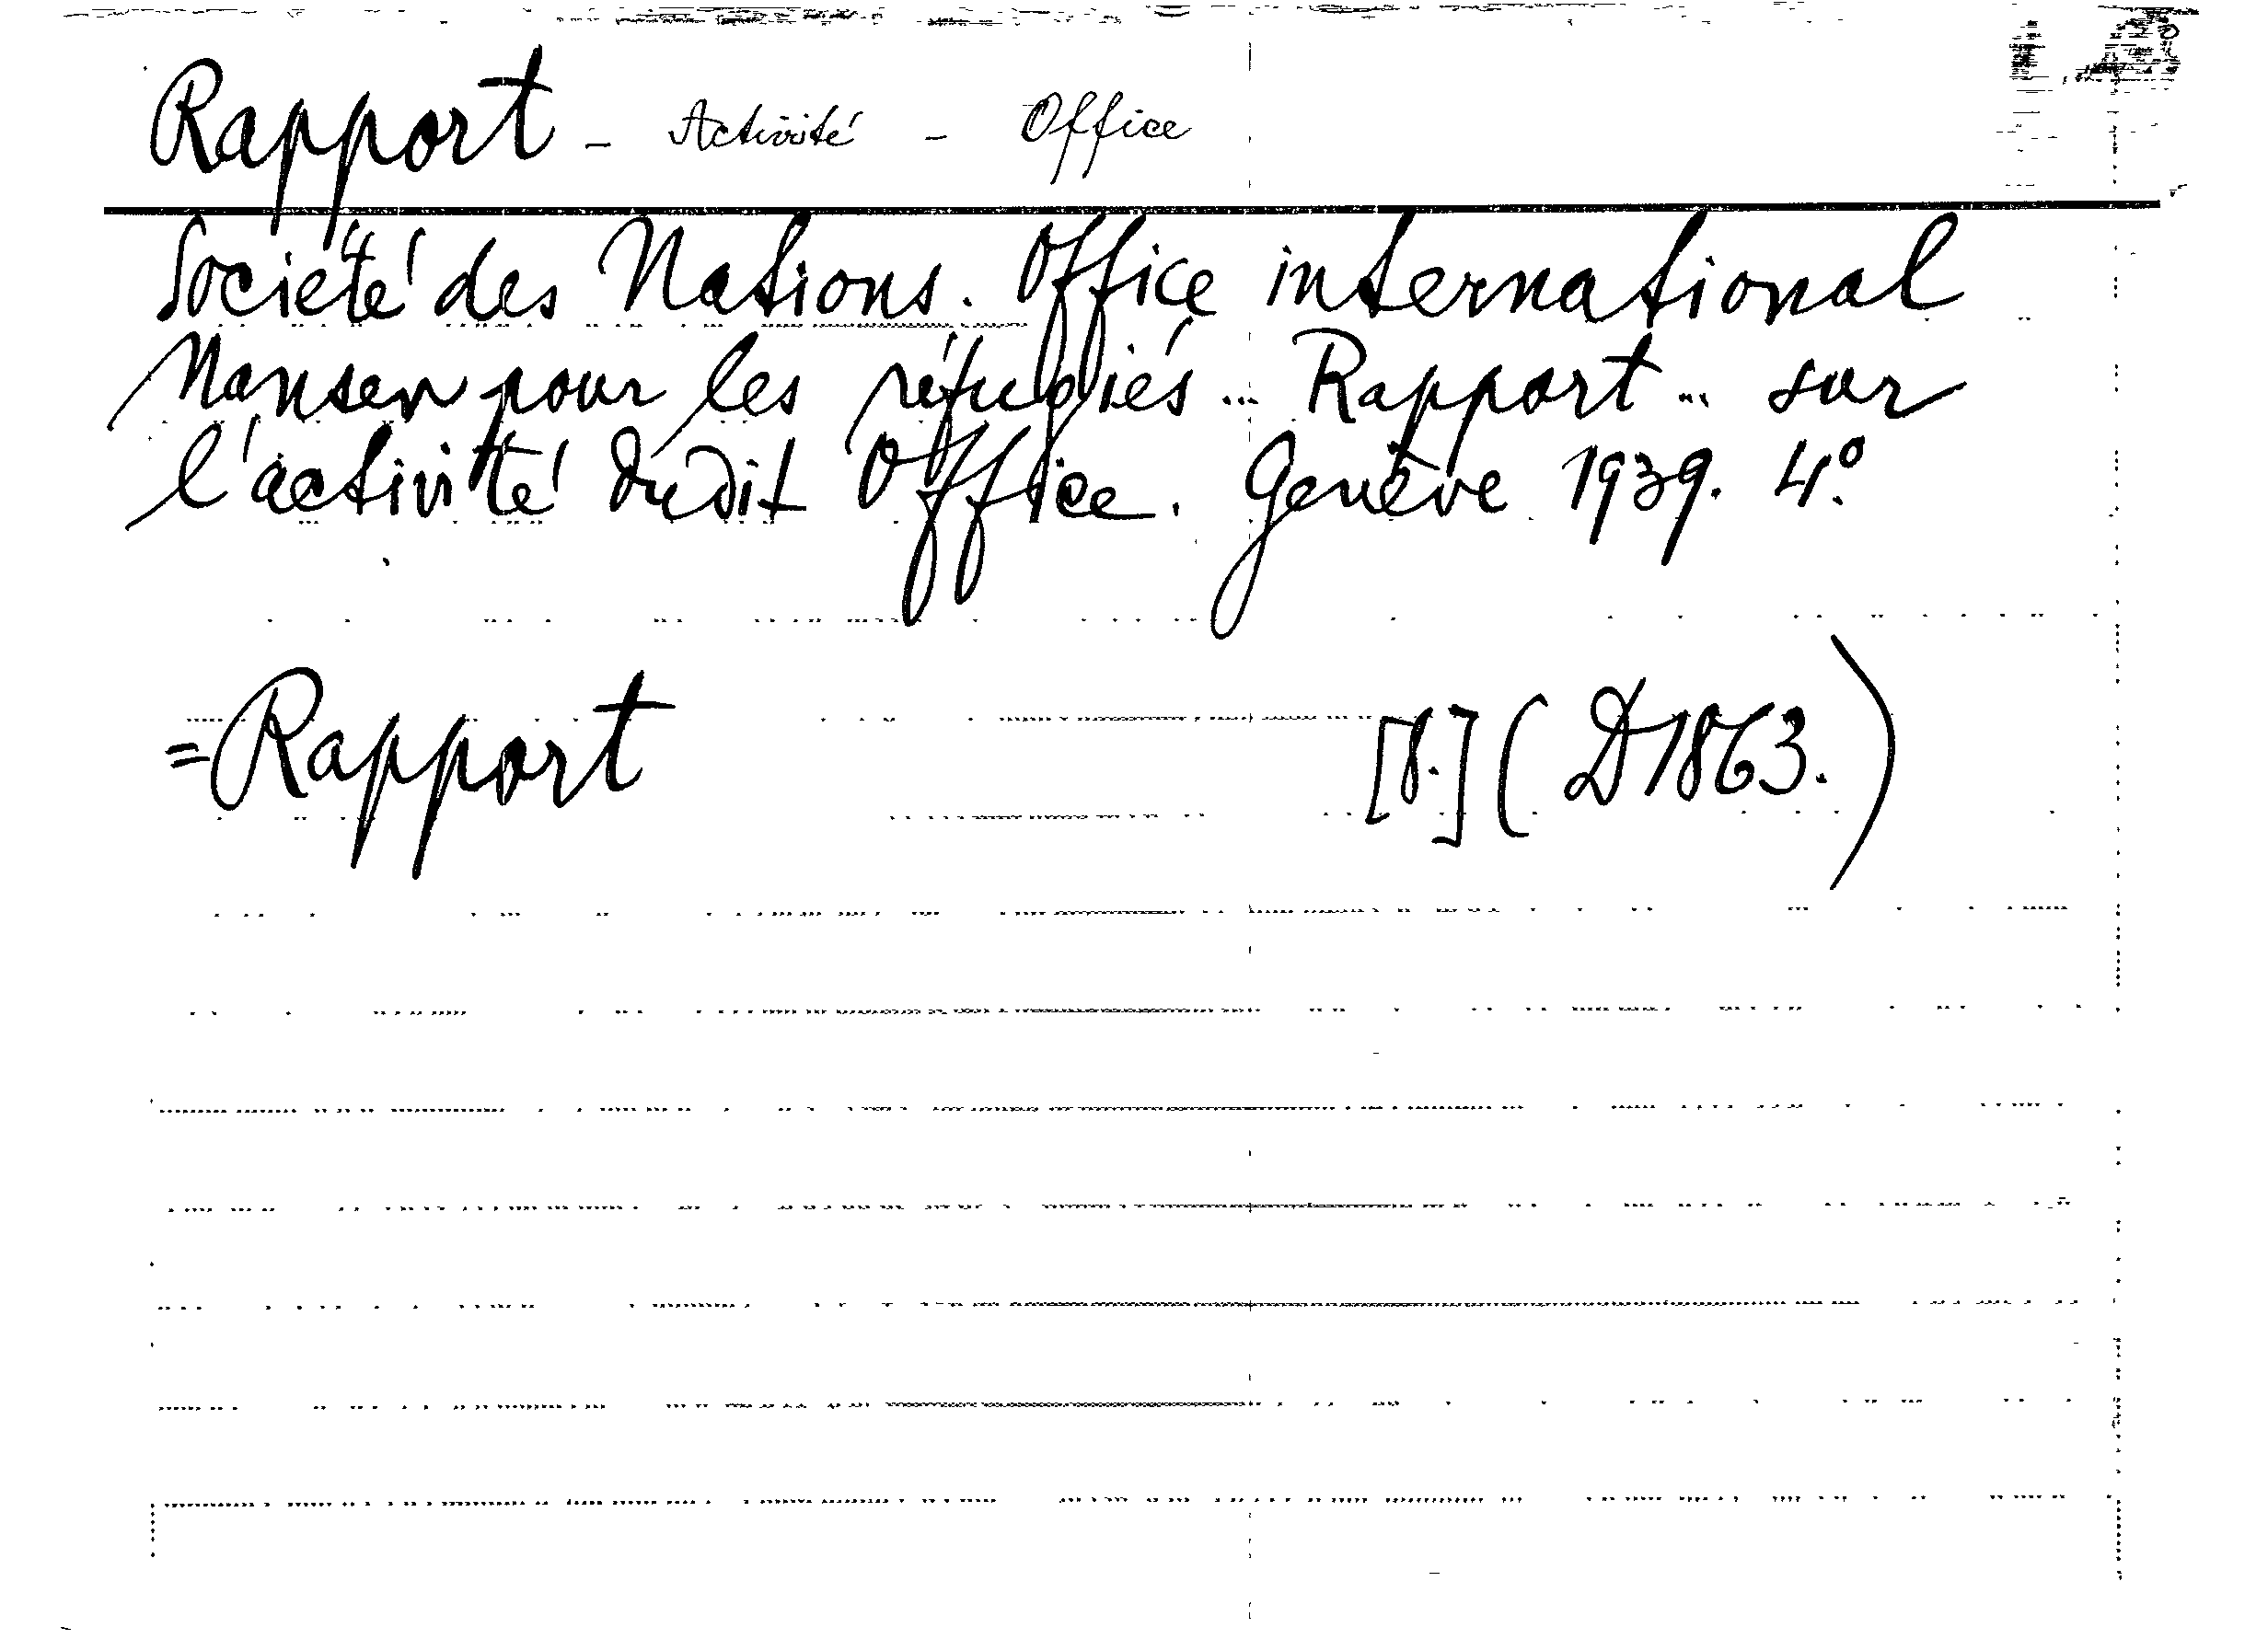 Rapport - Activité - Office
Société des Nations. Office international
Nansen pour les réfugiés... Rapport... sur
l'activité dudit Office. Genève 1939. 4º.
=Rapport [8.] (D1863.)